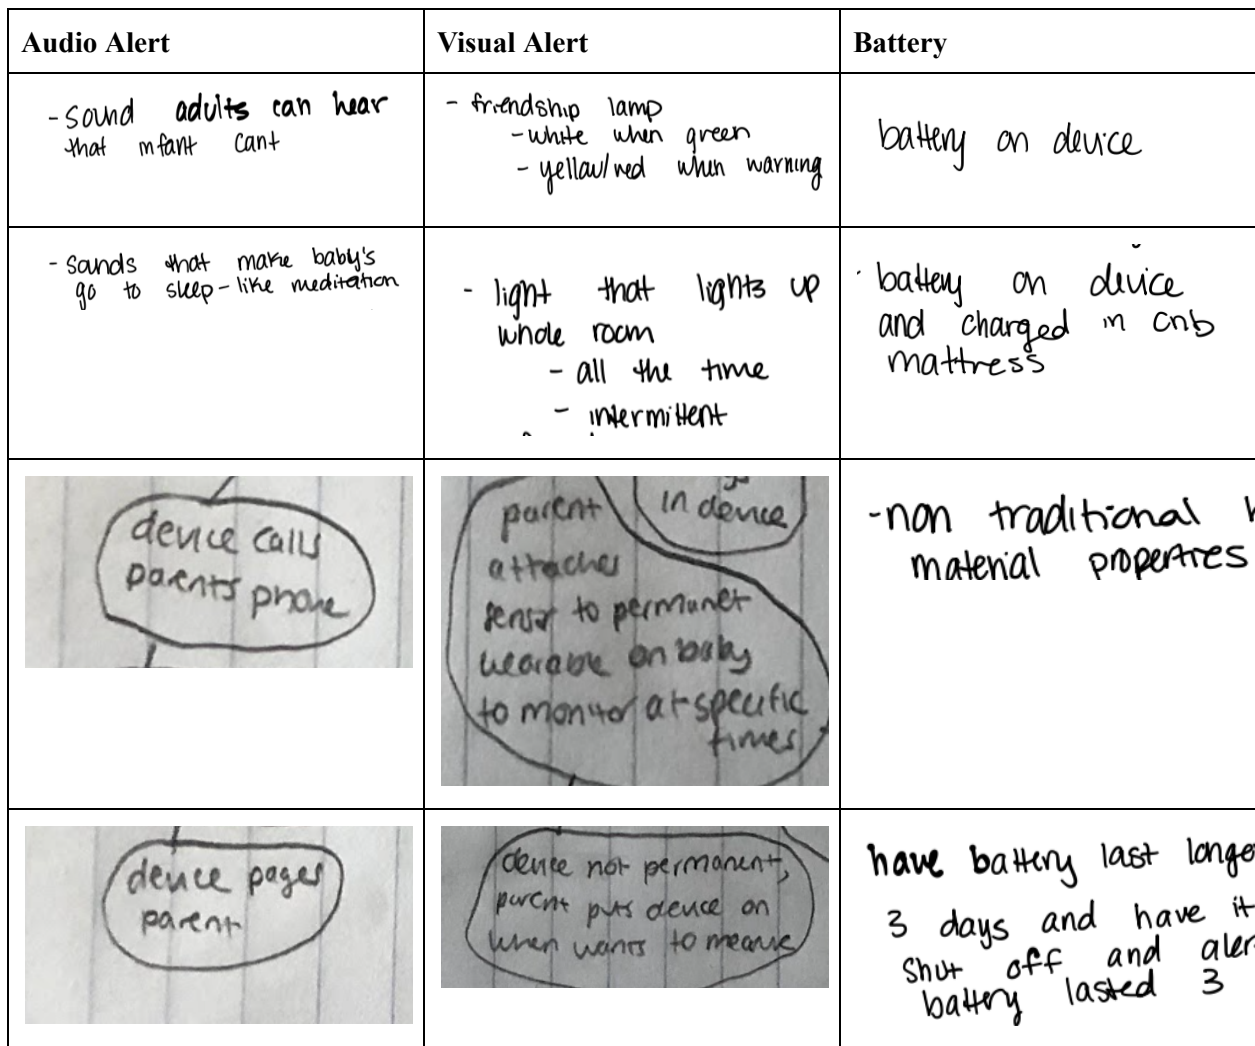 Audio Alert
Visual Alert
Battery
- sound adults can hear
that infant cant
- friendship lamp
- white when green
- yellow/red when warning
battery on device
- sounds that make baby's
go to sleep - like meditation
- light that lights up
whole room
- all the time
- intermittent
battery on device
and charged in crib
mattress
device calls
parents phone
in device
parent
attaches
sensor to permanet
wearable on baby
to monitor at specific
times
- non traditional
material properties
device pages
parent
device not permanent,
parent puts device on
when wants to
have battery last longe
3 days and have it
shut off and aler
battery lasted 3